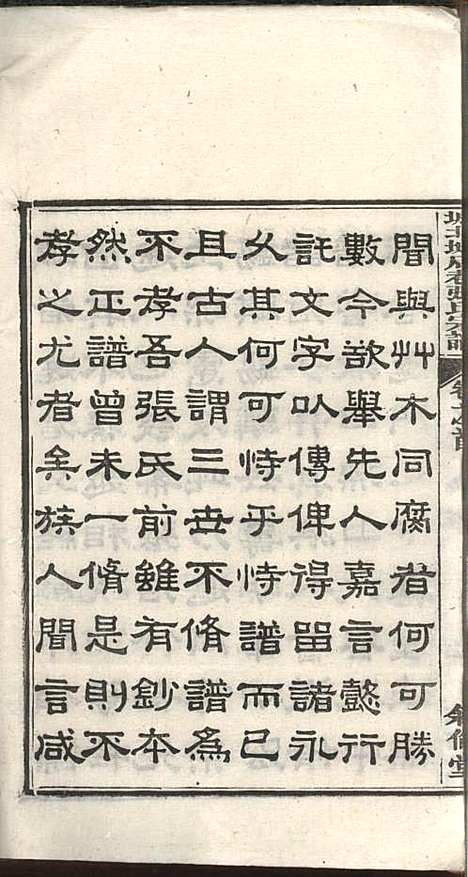 間與艸木同腐者何可勝
數今欲舉先人嘉言懿行
託文字以傳俾得留諸永
久其何可恃乎恃譜而已
且古人謂三世不脩譜為
不孝吾張氏前雖有鈔本
然正譜曾未一脩是則不
孝之尤者矣族人聞言咸